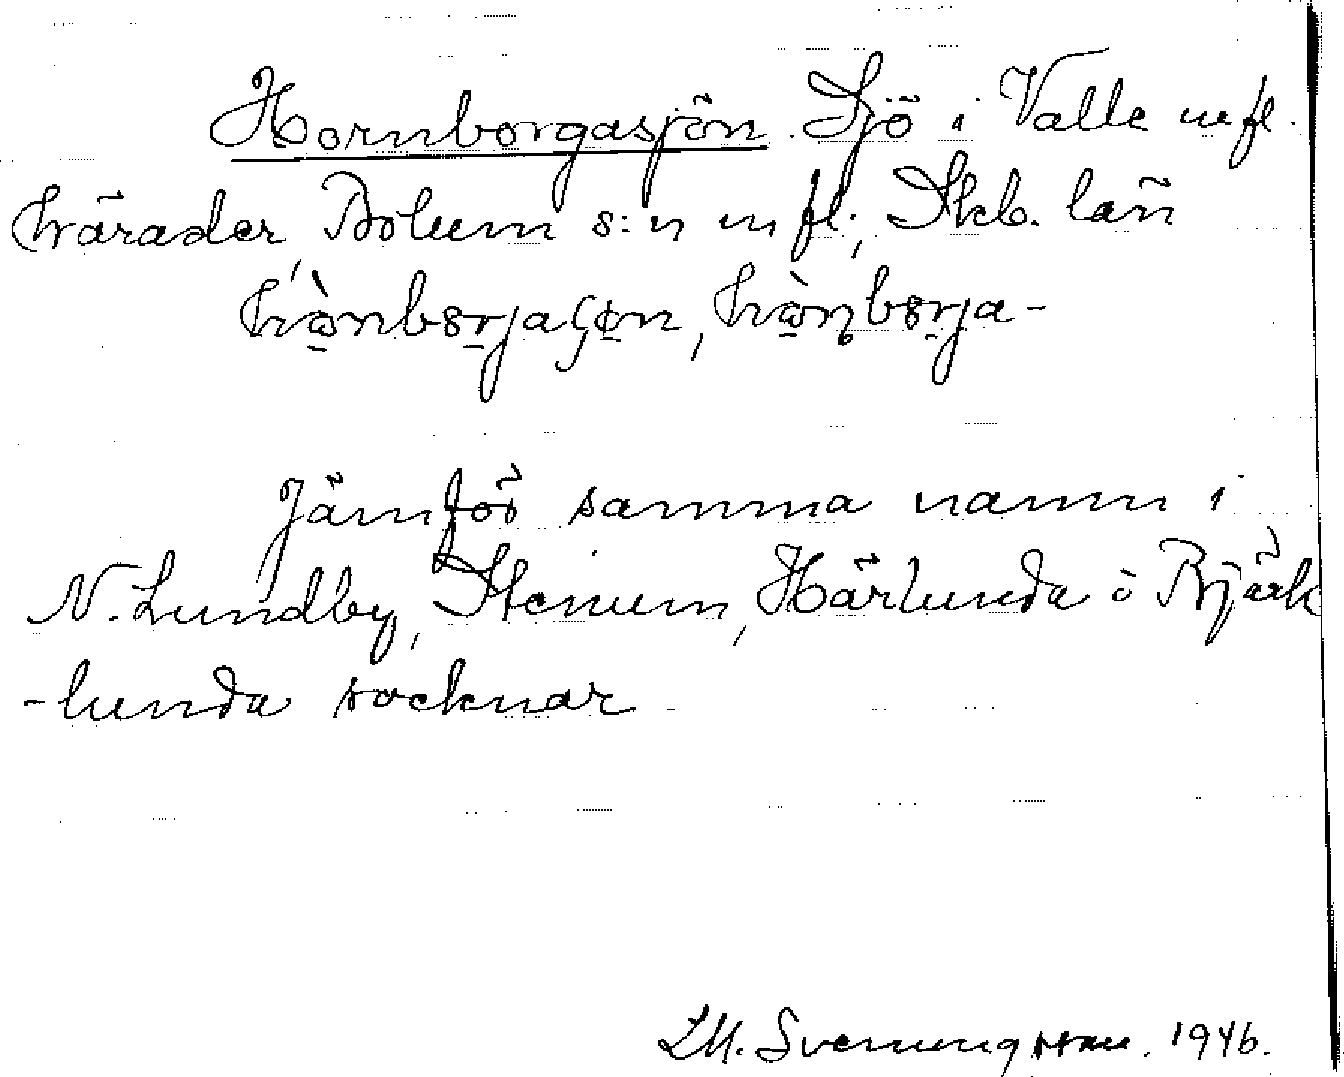 Hornborgasjön. Sjö i Valle m fl.
härader, Bolum s:n m fl., Skb. län
hò̱nbo̱rjaʃo̱n, hò̱nbo̱rja-
Jämför samma namn i
N. Lundby, Stenum, Härlunda o Bjärk
-lunda socknar
Svenungsson. 1946.